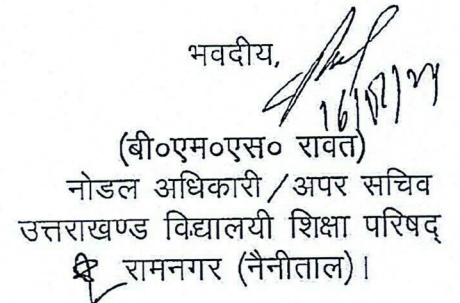 भवदीय,
(बी०एम०एस० रावत)
नोडल अधिकारी/अपर सचिव
उत्तराखण्ड विद्यालयी शिक्षा परिषद्
रामनगर (नैनीताल)।